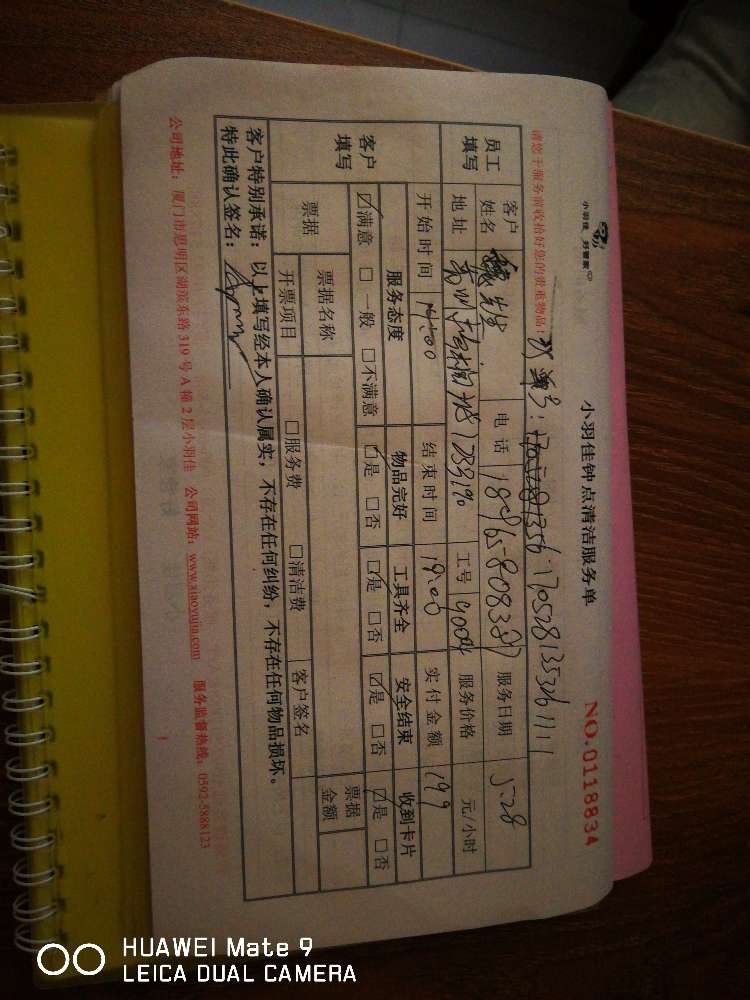 小羽佳 好管家
小羽佳钟点清洁服务单
NO.0118834
请您于服务前收拾好您的贵重物品！
170528135326111
员工填写
客户姓名
先生
电话
服务日期 5.28
地址
工号
服务价格
元/小时
开始时间 14:00
结束时间 19:00
实付金额 199
客户填写
服务态度
物品完好
工具齐全
安全结束
收到卡片
☑满意 □一般 □不满意
☑是 □否
☑是 □否
☑是 □否
☑是 □否
票据
票据名称
票据金额
开票项目
□服务费
□清洁费
客户签名
客户特别承诺：以上填写经本人确认属实，不存在任何纠纷，不存在任何物品损坏。
特此确认签名：
公司地址：厦门市思明区湖滨东路319号A幢2层小羽佳 公司网站：www.xiaoyujia.com 服务监督热线：0592-5888123
HUAWEI Mate 9
LEICA DUAL CAMERA